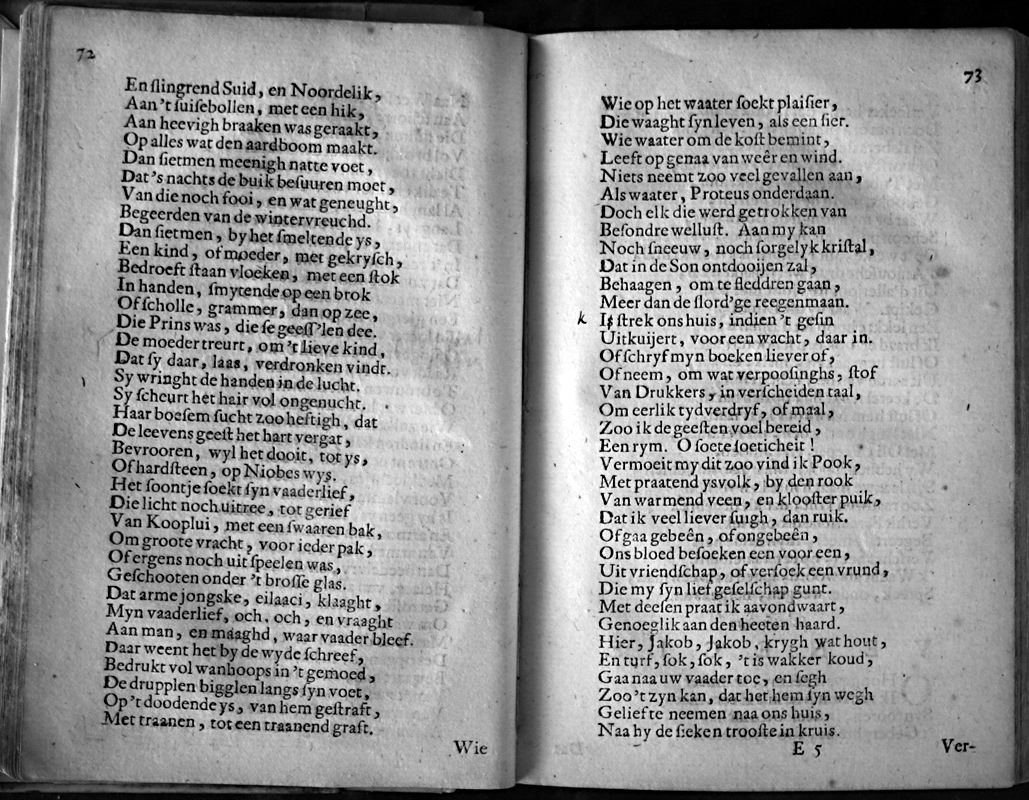 72
En ſlingrend Suid, en Noordelik,
Aan 't ſuiſebollen, met een hik,
Aan heevigh braaken was geraakt,
Op alles wat den aardboom maakt.
Dan ſietmen meenigh natte voet,
Dat 's nachts de buik beſuuren moet,
Van die noch fooi, en wat geneught,
Begeerden van de wintervreuchd.
Dan ſietmen, by het ſmeltende ys,
Een kind, of moeder, met gekryſch,
Bedroeft ſtaan vloeken, met een ſtok
In handen, ſmytende op een brok
Of ſcholle, grammer, dan op zee,
Die Prins was, die ſe geeſſ'len dee.
De moeder treurt, om 't lieve kind,
Dat ſy daar, laas, verdronken vindt.
Sy wringht de handen in de lucht.
Sy ſcheurt het hair vol ongenucht.
Haar boeſem ſucht zoo heftigh, dat
De leevens geeſt het hart vergat,
Bevrooren, wyl het dooit, tot ys,
Of hardſteen, op Niobes wys.
Het ſoontje ſoekt ſyn vaaderlief,
Die licht noch uitree, tot gerief
Van Kooplui, met een ſwaaren bak,
Om groote vracht, voor ieder pak,
Of ergens noch uit ſpeelen was,
Geſchooten onder 't broſſe glas.
Dat arme jongske, eilaaci, klaaght,
Myn vaaderlief, och, och, en vraaght
Aan man, en maaghd, waar vaader bleef.
Daar weent het by de wyde ſchreef,
Bedrukt vol wanhoops in 't gemoed,
De drupplen bigglen langs ſyn voet,
Op 't doodende ys, van hem geſtraft,
Met traanen, tot een traanend graft.
Wie
73
Wie op het waater ſoekt plaiſier,
Die waaght ſyn leven, als een ſier.
Wie waater om de koſt bemint,
Leeft op genaa van weêr en wind.
Niets neemt zoo veel gevallen aan,
Als waater, Proteus onderdaan.
Doch elk die werd getrokken van
Beſondre welluſt. Aan my kan
Noch ſneeuw, noch ſorgelyk kriſtal,
Dat in de Son ontdooijen zal,
Behaagen, om te ſleddren gaan,
Meer dan de ſlord'ge reegenmaan.
k
Iſ ſtrek ons huis, indien 't geſin
Uitkuijert, voor een wacht, daar in.
Of ſchryf myn boeken liever of,
Of neem, om wat verpooſinghs, ſtof
Van Drukkers, in verſcheiden taal,
Om eerlik tydverdryf, of maal,
Zoo ik de geeſten voel bereid,
Een rym. O ſoete ſoeticheit!
Vermoeit my dit zoo vind ik Pook,
Met praatend ysvolk, by den rook
Van warmend veen, en klooſter puik,
Dat ik veel liever ſuigh, dan ruik.
Of gaa gebeên, of ongebeên,
Ons bloed beſoeken een voor een,
Uit vriendſchap, of verſoek een vrund,
Die my ſyn lief geſelſchap gunt.
Met deeſen praat ik aavondwaart,
Genoeglik aan den heeten haard.
Hier, Jakob, Jakob, krygh wat hout,
En turf, ſok, ſok, 't is wakker koud,
Gaa naa uw vaader toe, en ſegh
Zoo 't zyn kan, dat het hem ſyn wegh
Geliefte neemen naa ons huis,
Naa hy de ſieken trooſte in kruis.
E 5
Ver-